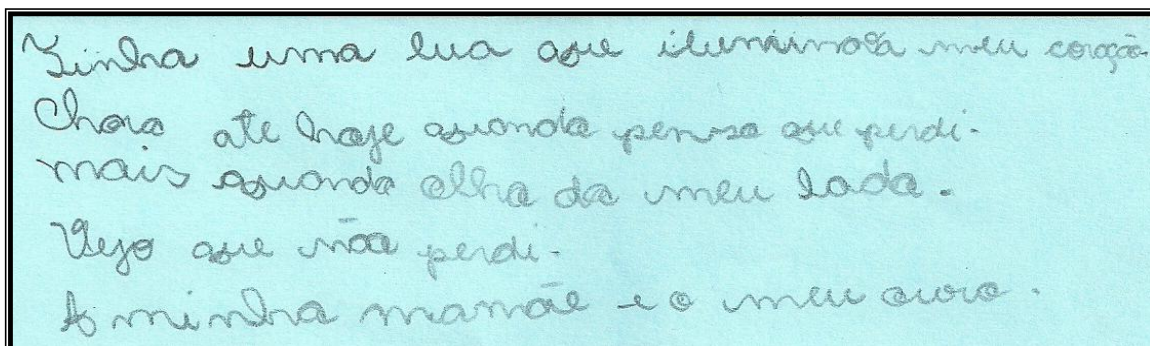 Tinha uma lua que iluminava meu coração.
Choro ate hoje quando penso que perdi.
mais quando olho do meu lado.
Vejo que não perdi.
A minha mamãe e o meu ouro.